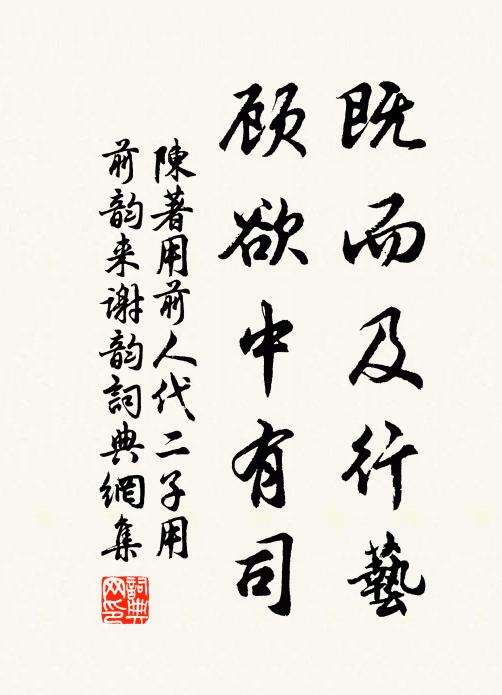 既而及行藝
顧欲中有司
陳著用前人代二子用
前韵来谢韵詞典網集
詞典